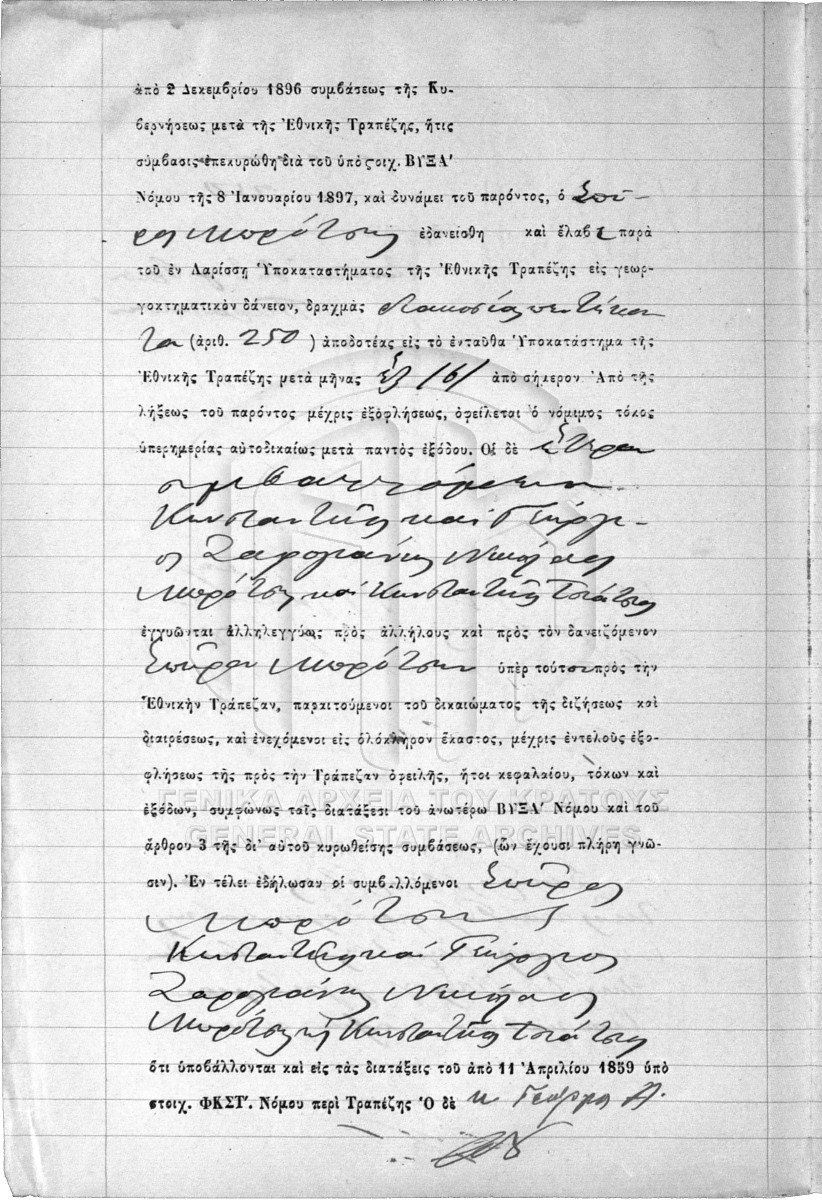 ἀπὸ 2 Δεκεμβρίου 1896 συμβάσεως τῆς Κυ-
βερνήσεως μετὰ τῆς Ἐθνικῆς Τραπέζης, ἥτις
σύμβασις ἐπεκυρώθη διὰ τοῦ ὑπὸ στοιχ. ΒΥΞΑ'
Νόμου τῆς 8 Ἰανουαρίου 1897, καὶ δυνάμει τοῦ παρόντος, ὁ Σπῦ-
ρος Μπρότσης ἐδανείσθη καὶ ἔλαβε παρὰ
τοῦ ἐν Λαρίσσῃ Ὑποκαταστήματος τῆς Ἐθνικῆς Τραπέζης εἰς γεωρ-
γοκτηματικὸν δάνειον, δραχμὰς διακοσίας πεντήκον
τα (ἀριθ. 250) ἀποδοτέας εἰς τὸ ἐνταῦθα Ὑποκατάστημα τῆς
Ἐθνικῆς Τραπέζης μετὰ μῆνας ἓξ /6/ ἀπὸ σήμερον Ἀπὸ τῆς
λήξεως τοῦ παρόντος μέχρις ἐξοφλήσεως, ὀφείλεται ὁ νόμιμος τόκος
ὑπερημερίας αὐτοδικαίως μετὰ παντὸς ἐξόδου. Οἱ δὲ ἕτεροι
συμβαλλόμενοι
Κωνσταντῆς καὶ Γεώργι-
ος Ζαρογιάννης Νικόλαος
Μπρότσης καὶ Κωνσταντῆς Τσιάτσιος
ἐγγυῶνται ἀλληλεγγύως πρὸς ἀλλήλους καὶ πρὸς τὸν δανειζόμενον
Σπῦρον Μπρότσην ὑπὲρ τούτου πρὸς τὴν
Ἐθνικὴν Τράπεζαν, παραιτούμενοι τοῦ δικαιώματος τῆς διζήσεως καὶ
διαιρέσεως, καὶ ἐνεχόμενοι εἰς ὁλόκληρον ἕκαστος, μέχρις ἐντελοῦς ἐξο-
φλήσεως τῆς πρὸς τὴν Τράπεζαν ὀφειλῆς, ἤτοι κεφαλαίου, τόκων καὶ
ΓΕΝΙΚΑ ΑΡΧΕΙΑ ΤΟΥ ΚΡΑΤΟΥΣ
ἐξόδων, συμφώνως ταῖς διατάξεσι τοῦ ἀνωτέρω ΒΥΞΑ' Νόμου καὶ τοῦ
GENERAL STATE ARCHIVES
ἄρθρου 3 τῆς δι' αὐτοῦ κυρωθείσης συμβάσεως, (ὧν ἔχουσι πλήρη γνῶ-
σιν). Ἐν τέλει ἐδήλωσαν οἱ συμβαλλόμενοι Σπῦρος
Μπρότσης
Κωνσταντῆς καὶ Γεώργιος
Ζαρογιάννης Νικόλαος
Μπρότσης ἢ Κωνσταντῆς Τσιάτσιος
ὅτι ὑποβάλλονται καὶ εἰς τὰς διατάξεις τοῦ ἀπὸ 11 Ἀπριλίου 1859 ὑπὸ
στοιχ. ΦΚΣΤ'. Νόμου περὶ Τραπέζης Ὁ δὲ κ Γεώργιος Α.